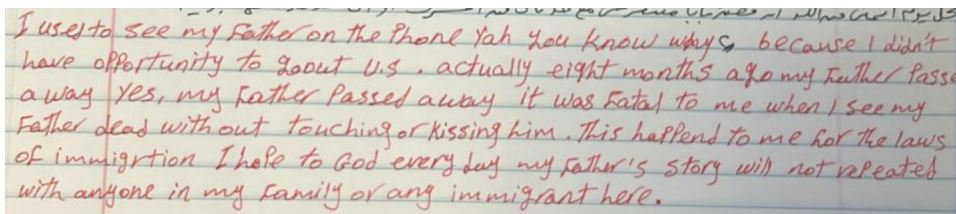 I used to see my Father on the Phone Yah you know why, because I didn't
have opportunity to goout U.S. actually eight months ago my Father Passe
away yes, my Father Passed away it was Fatal to me when I see my
Father dead with out touching or kissing him. This happend to me for the laws
of immigrtion I hope to God every day my Father's story will not repeated
with anyone in my family or any immigrant here.